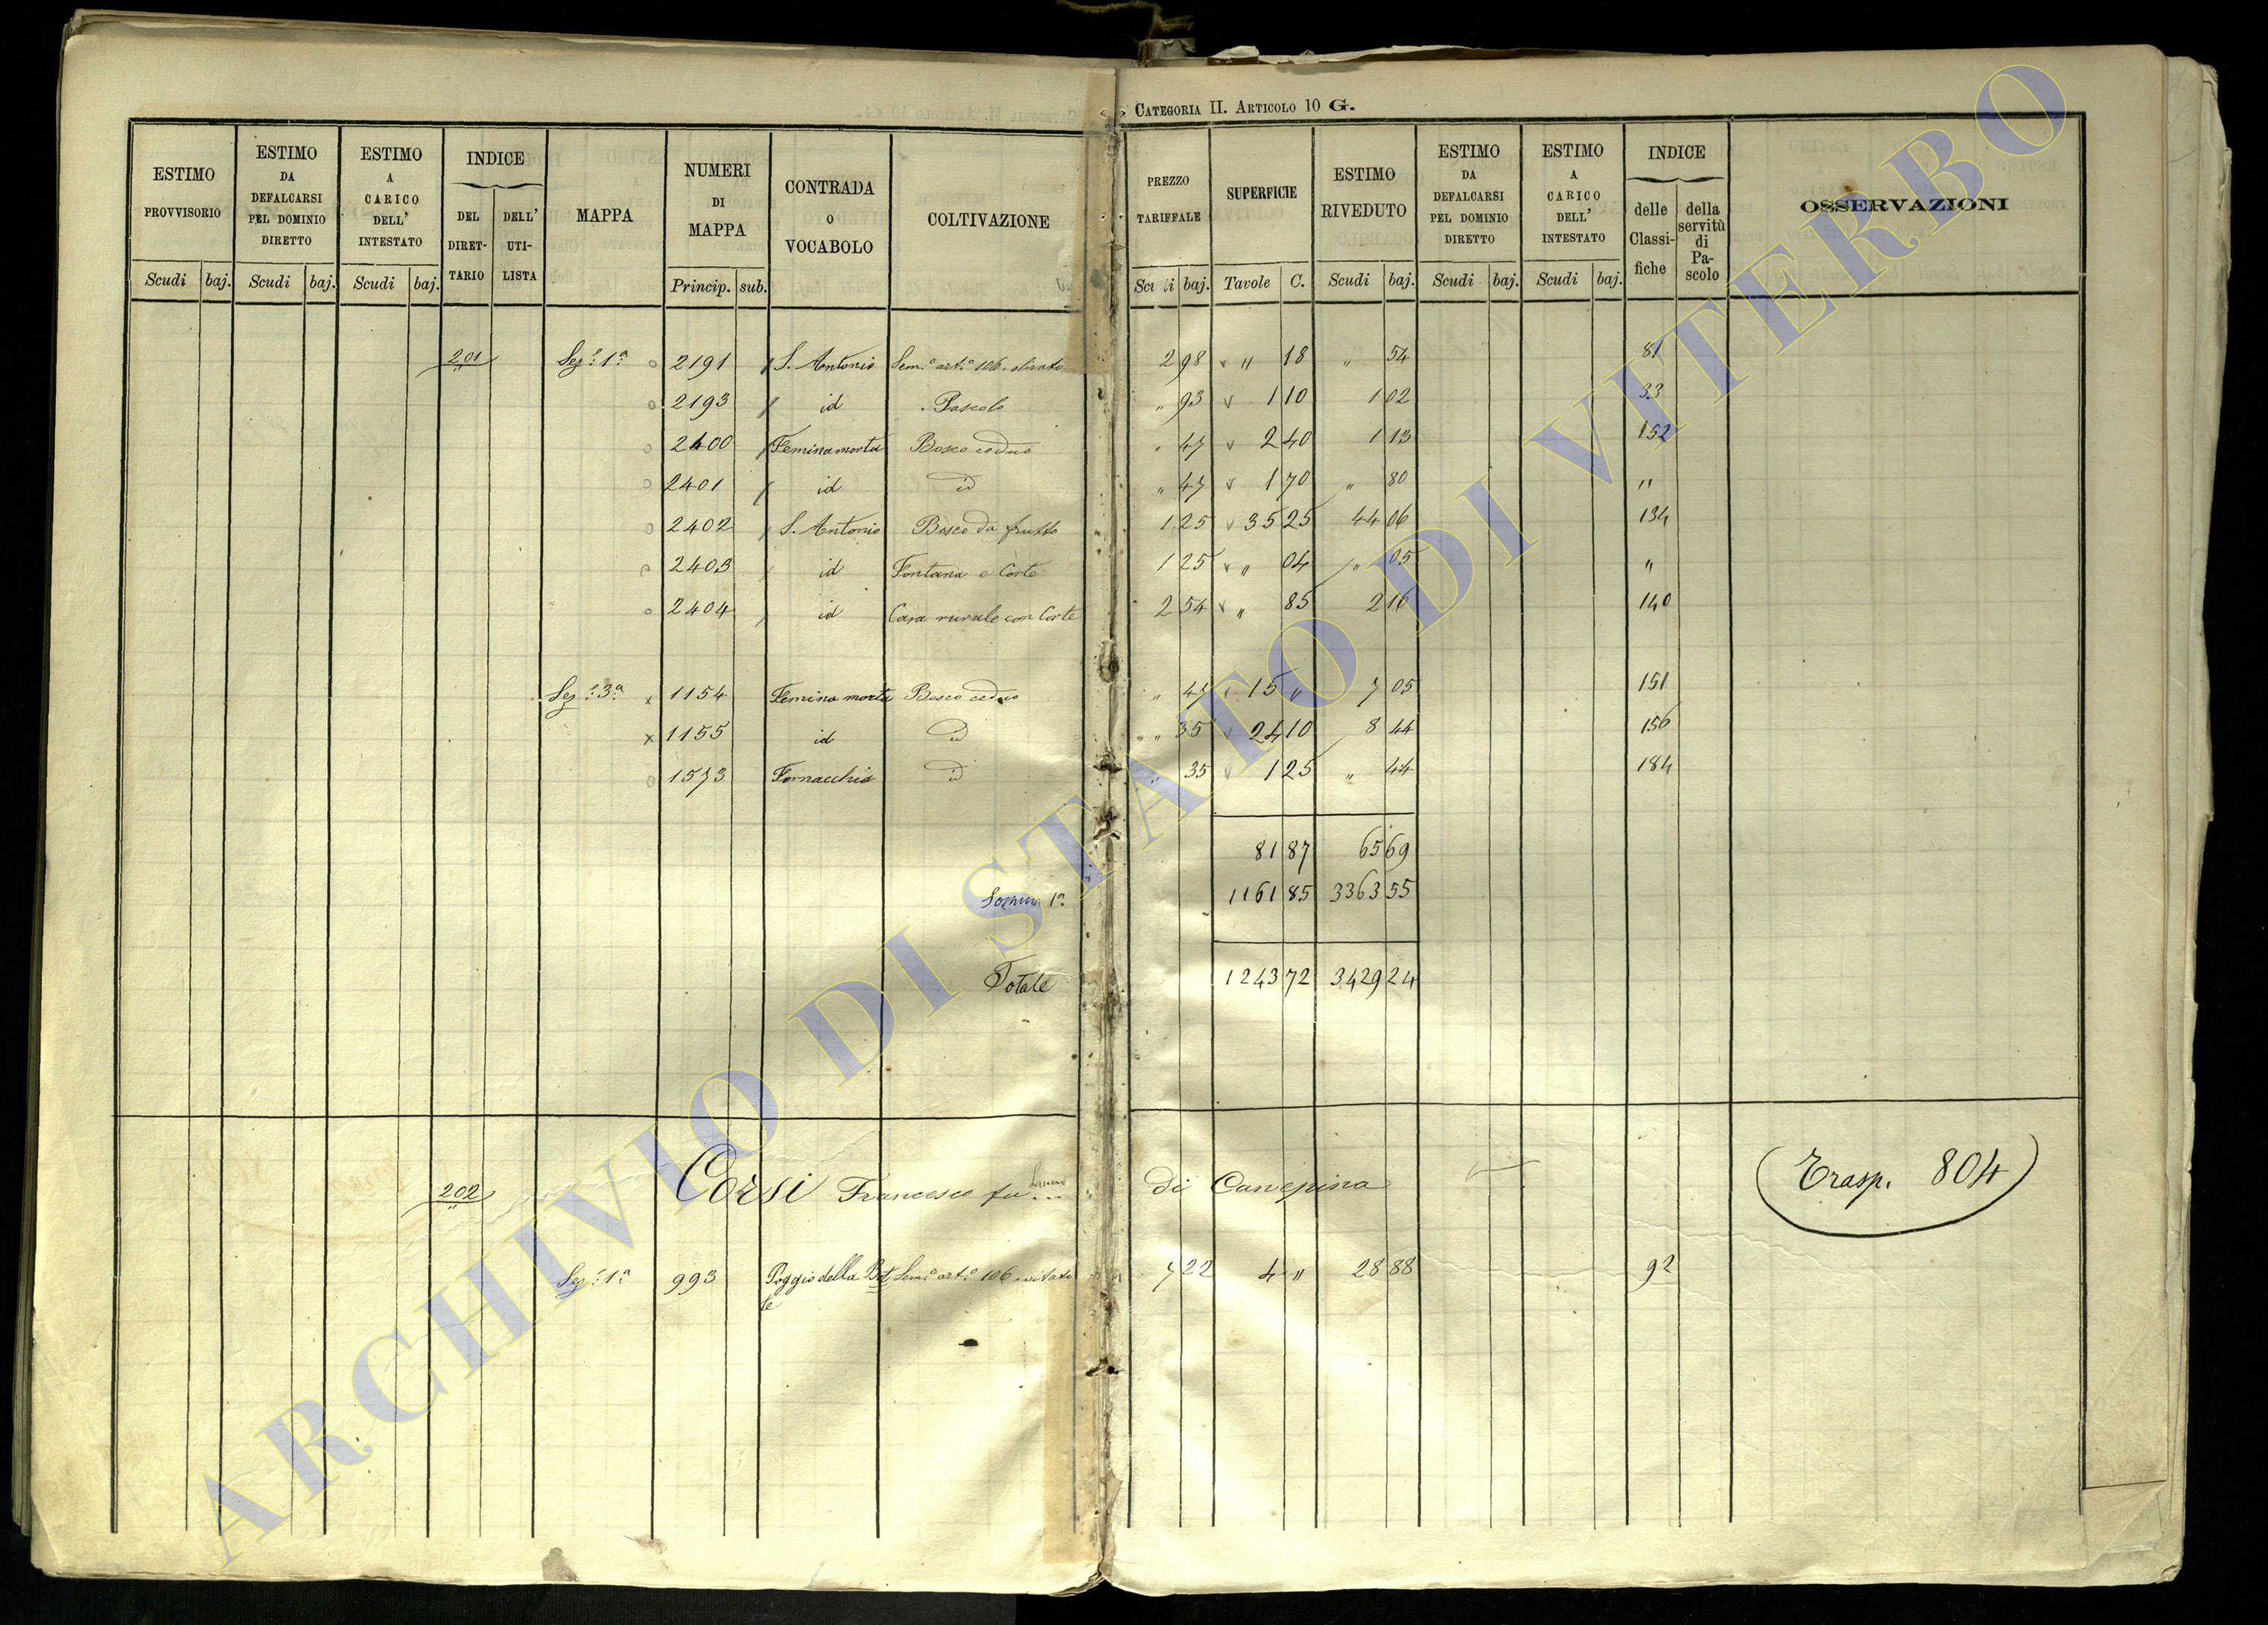 CATEGORIA II. ARTICOLO 10 G.
ESTIMO PROVVISORIO Scudi baj.
ESTIMO DA DEFALCARSI PEL DOMINIO DIRETTO Scudi baj.
ESTIMO A CARICO DELL' INTESTATO Scudi baj.
INDICE DEL DIRETTARIO DELL' UTILISTA
MAPPA
NUMERI DI MAPPA Princip. sub.
CONTRADA o VOCABOLO
COLTIVAZIONE
PREZZO TARIFFALE baj.
SUPERFICIE Tavole C.
ESTIMO RIVEDUTO Scudi baj.
ESTIMO DA DEFALCARSI PEL DOMINIO DIRETTO Scudi baj.
ESTIMO A CARICO DELL' INTESTATO Scudi baj.
INDICE delle Classifiche della servitù di Pascolo
OSSERVAZIONI
201 Sez.e 1a o 2191 S. Antonio Sem.o art.o 106. olivato 2 98 v " 18 " 54 81
o 2193 id Pascolo " 93 v 1 10 1 02 33
o 2400 Femina morta Bosco ceduo " 47 v 2 40 1 13 152
o 2401 id id " 47 v 1 70 " 80 "
o 2402 S. Antonio Bosco da frutto 1 25 v 35 25 44 06 134
o 2403 id Fontana e Corte 1 25 v " 04 " 05 "
o 2404 id Casa rurale con Corte 2 54 v " 85 2 16 140
Sez.e 3a x 1154 Femina morta Bosco ceduo " 47 v 15 " 7 05 151
x 1155 id id " 35 v 24 10 8 44 156
o 1573 Fornacchia id " 35 v 1 25 " 44 184
81 87 65 69
Somma 1a 1161 85 3363 55
Totale 1243 72 3429 24
202 Corsi Francesco fu di Canepina (Trasp. 804)
Sez.e 1a 993 Poggio della Botte Sem.o art.o 106 vitato 7 22 4 " 28 88 92
ARCHIVIO DI STATO DI VITERBO